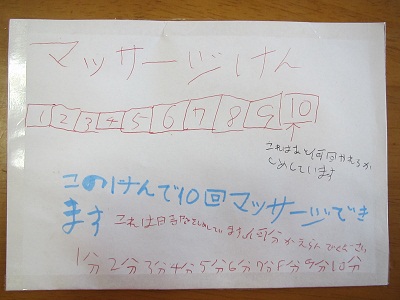 マッサージけん
1 2 3 4 5 6 7 8 9 10
これはあと何回かえるか
しめしています
このけんで10回マッサージでき
ます
これは時間をしめしています。何分かえらんでください
1分 2分 3分 4分 5分 6分 7分 8分 9分 10分